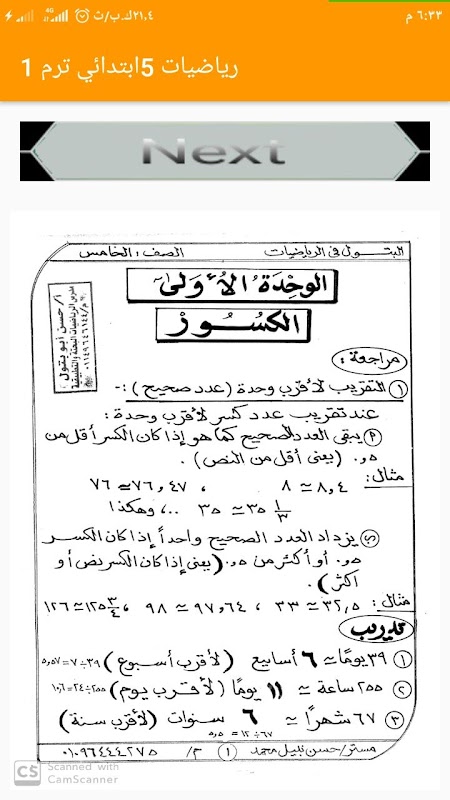 ٢١,٤ك.ب/ث ٦:٣٣ م
رياضيات 5ابتدائي ترم 1
Next
البتول في الرياضيات الصف: الخامس
الوحدة الأولى
الكسور
أ/ حسن أبو بتول
مدرس الرياضيات البحتة والتطبيقية
مراجعة:
١ التقريب لأقرب وحدة (عدد صحيح) :-
عند تقريب عدد كسر لأقرب وحدة:
P يبقى العدد الصحيح كما هو إذا كان الكسر أقل من
٠,٥ (يعنى أقل من النص).
مثال: ٨,٤ ≃ ٨ ، ٧٦,٤٧ ≃ ٧٦
٣٥ ١/٣ ≃ ٣٥ ..، وهكذا
ب يزداد العدد الصحيح واحداً إذا كان الكسر
٠,٥ أو أكثر من ٠,٥ (يعنى إذا كان الكسر نص أو
اكثر).
مثال: ٣٢,٥ ≃ ٣٣ ، ٩٧,٦٤ ≃ ٩٨ ، ١٢٥ ٣/٤ ≃ ١٢٦
تدريب
١ ٣٩ يومًا ≃ ٦ أسابيع (لأقرب أسبوع) ٣٩÷٧=٥,٥٧
٢ ٢٥٥ ساعة ≃ ١١ يومًا (لأقرب يوم) ٢٥٥÷٢٤=١٠,٦
٣ ٦٧ شهرًا ≃ ٦ سنوات (لأقرب سنة)
٦٧÷١٢=٥,٥
مستر/حسن نبيل محمد ١ م/ ٠١٠٩٦٤٤٤٢٧٥
CS Scanned with
CamScanner